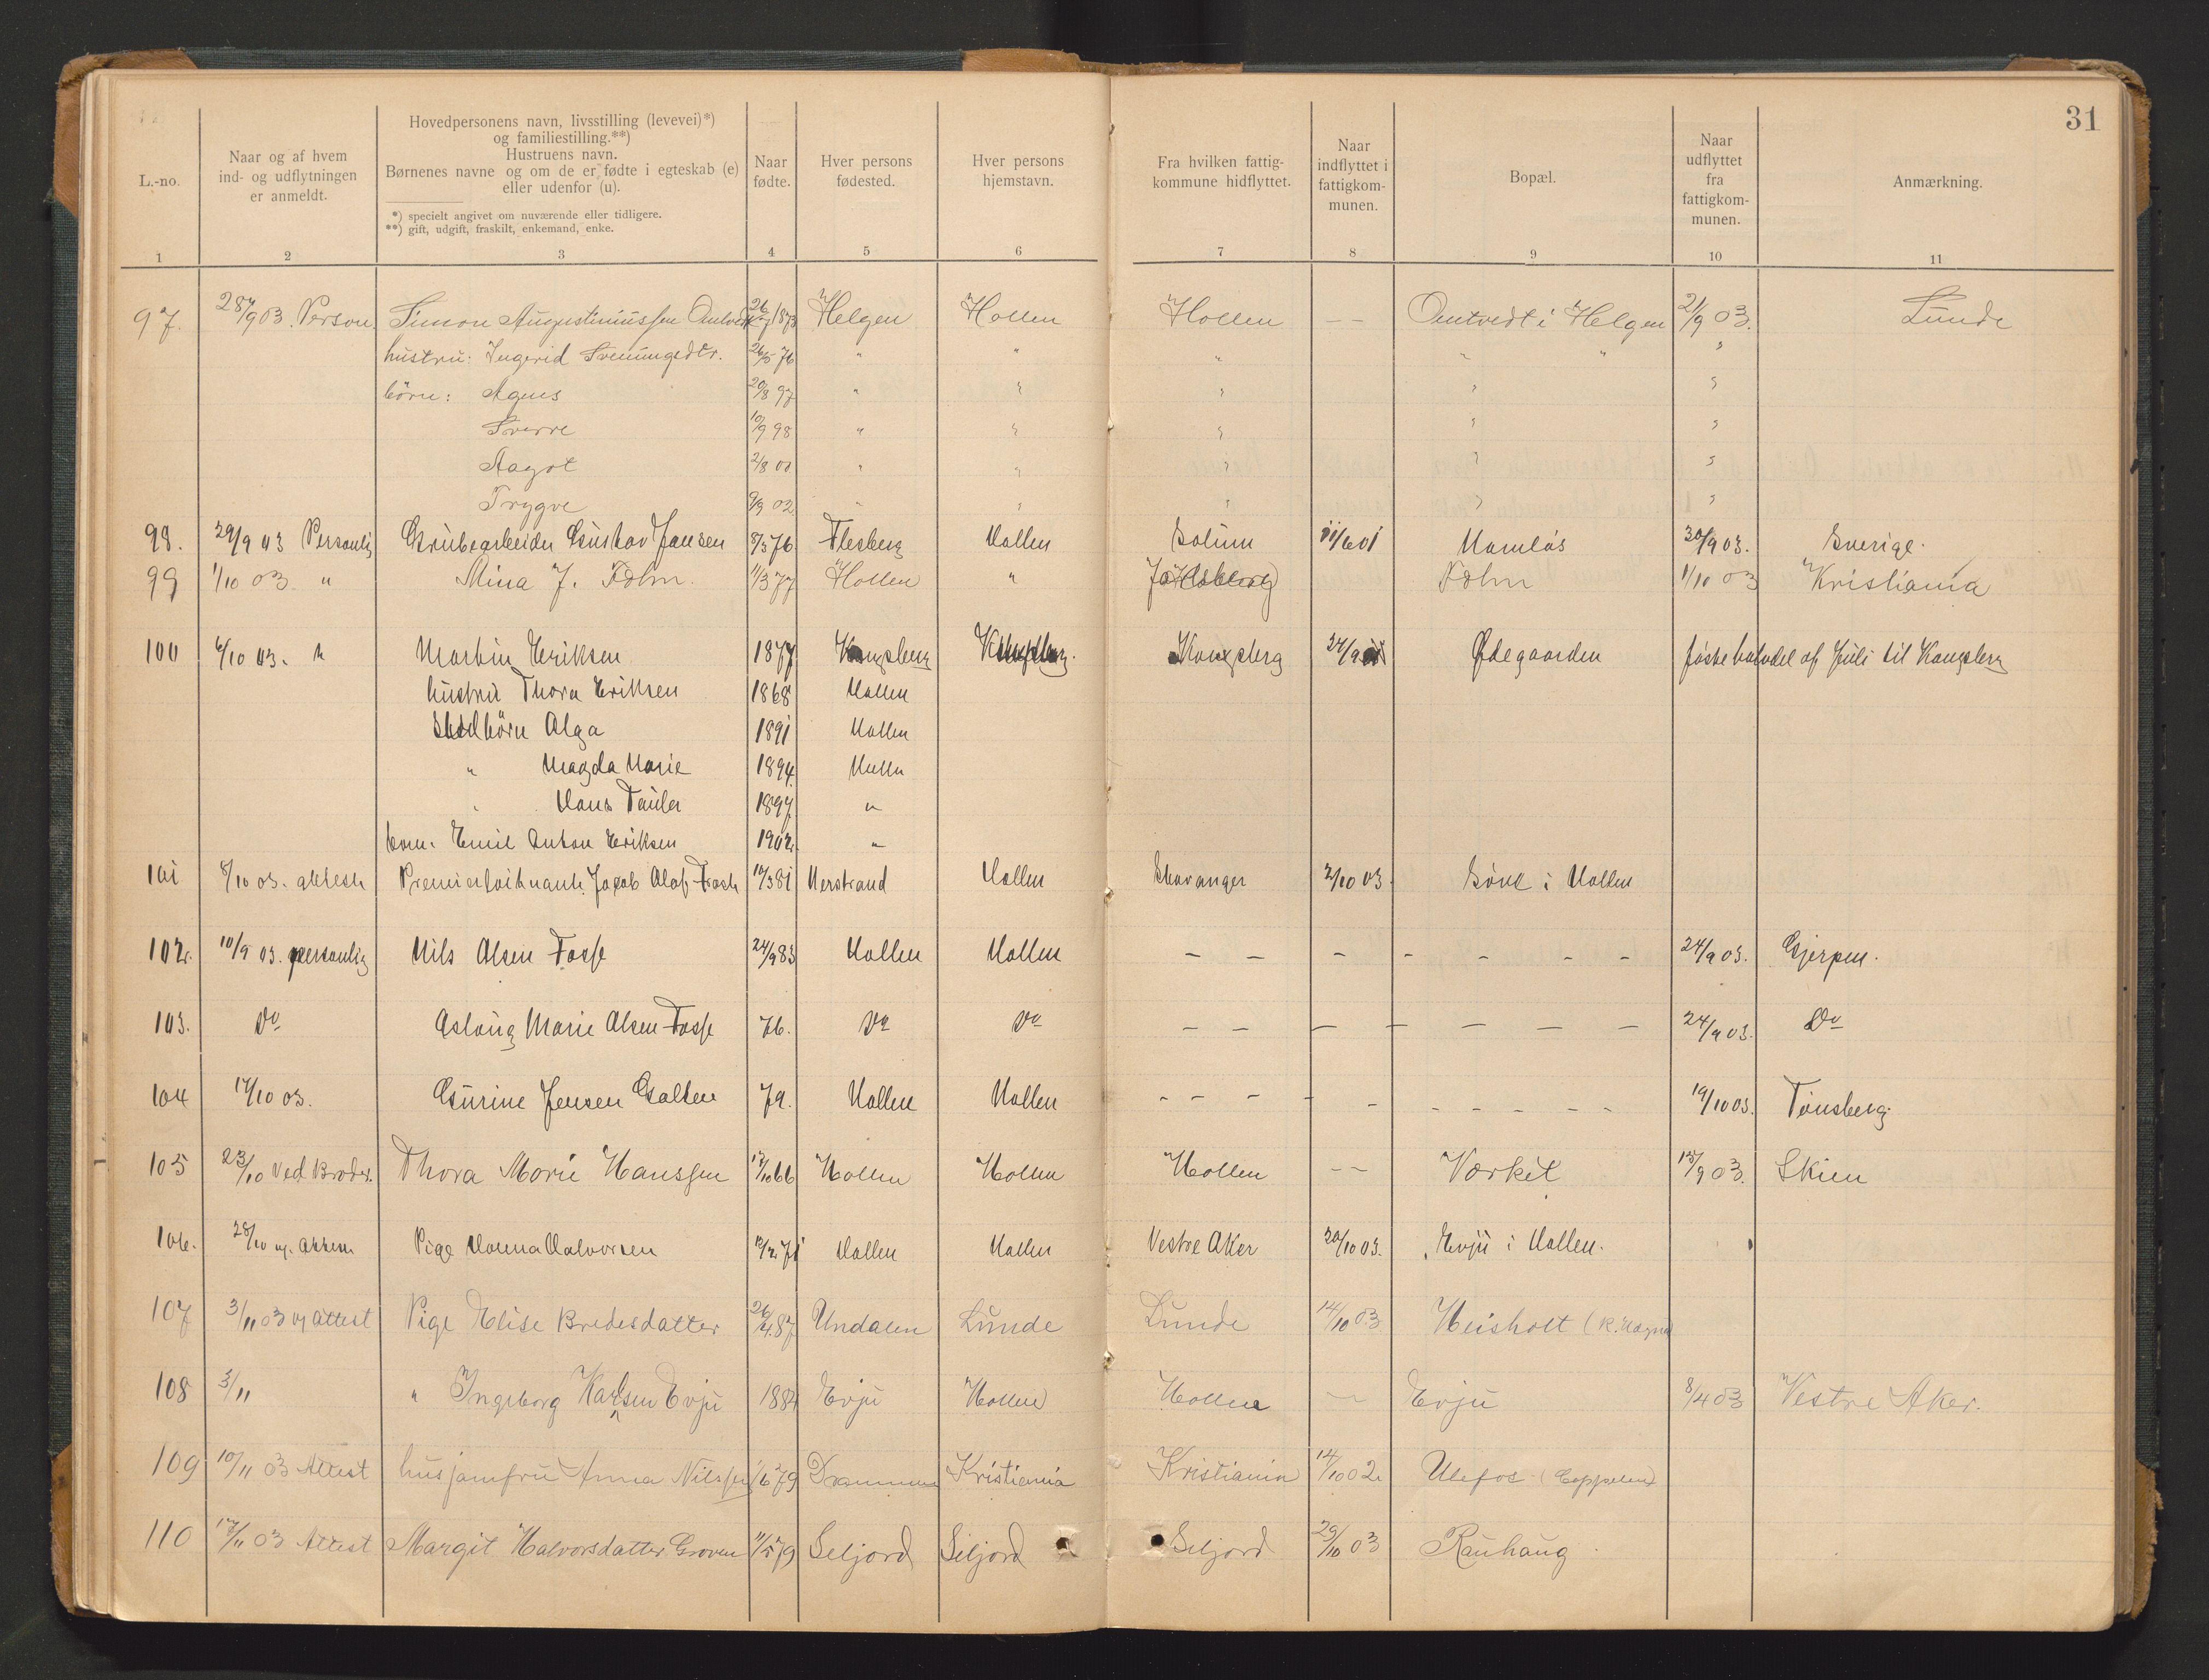 31
L.-no.
Naar og af hvem ind- og udflytningen er anmeldt.
Hovedpersonens navn, livsstilling (levevei)*) og familiestilling.**)
Hustruens navn.
Børnenes navne og om de er fødte i egteskab (e) eller udenfor (u).
*) specielt angivet om nuværende eller tidligere.
**) gift, udgift, fraskilt, enkemand, enke.
Naar fødte.
Hver persons fødested.
Hver persons hjemstavn.
Fra hvilken fattigkommune hidflyttet.
Naar indflyttet i fattigkommunen.
Bopæl.
Naar udflyttet fra fattigkommunen.
Anmærkning.
1 2 3 4 5 6 7 8 9 10 11
97. 28/9 03. Person. Simon Augustiniussen Omtvedt 1873 Helgen Hollen Hollen — — Omtvedt i Helgen 21/9 03. Lunde
hustru: Ingerid Sveinungsdtr. 26/5 76 " " " " " "
børn: Agnes 20/8 97 " " " " "
Sverre 10/9 98 " " " " "
Aagot 2/8 00 " " " " "
Trygve 9/9 02 " " " " "
98. 29/9 03 Personlig Grubearbeider Gustav Jansen 8/5 76 Flesberg Hollen Solum 11/6 01 Namløs 30/9 03. Sverige.
99 1/10 03. " Mina J. Holm. 11/3 77 Hollen " Holm 1/10 03 Kristiania
100 6/10 03. " Martin Eriksen 1877 Kongsberg Kongsberg. Kongsberg 24/9 Ødegaarden til Kongsberg
hustru Thora Eriksen 1868 Hollen
Stedbörn Olga 1891 Hollen
" Magda Marie 1894 Hollen
" Hans 1897 "
barn. Emil Anton Eriksen 1902. "
101 8/10 03. attest Premierløitnant Jacob Olaf 81 Hollen Stavanger 2/10 03. Søve i Hollen
102. 10/9 03. personlig Nils Olsen Fosse 24/9 83 Hollen Hollen — — — — — — — 24/9 03. Gjerpen.
103. Do Aslaug Marie Olsen Fosse 76. Do Do — — — — — — — 24/9 03. Do
104 17/10 03. Gurine Jensen Galten 79. Hollen Hollen - - - - - - - - - - 19/10 03. Tønsberg.
105 23/10 Ved Broder. Thora Marie Hanssen 66 Hollen Hollen Hollen — — Værket 03. Skien
106. 28/10 Pige Hanna Halvorsen 71 Hollen Hollen Vestre Aker 20/10 03. Evju i Hollen.
107 3/11 03 Attest Pige Elise Bredesdatter 26/4 87 Undalen Lunde Lunde 14/10 03 Heisholt
108 3/11 " Ingeborg Karlsen Evju 1884 Evju Hollen Hollen — Evju 8/4 03 Vestre Aker.
109 10/11 03 Attest husjomfru Anna Nilssen 1/6 79 Drammen Kristiania Kristiania 14/10 02. Ulefos (Cappelen)
110 17/11 03 Attest Margit Halvorsdatter Groven 11/5 79 Seljord Seljord Seljord 29/10 03 Rauhaug.